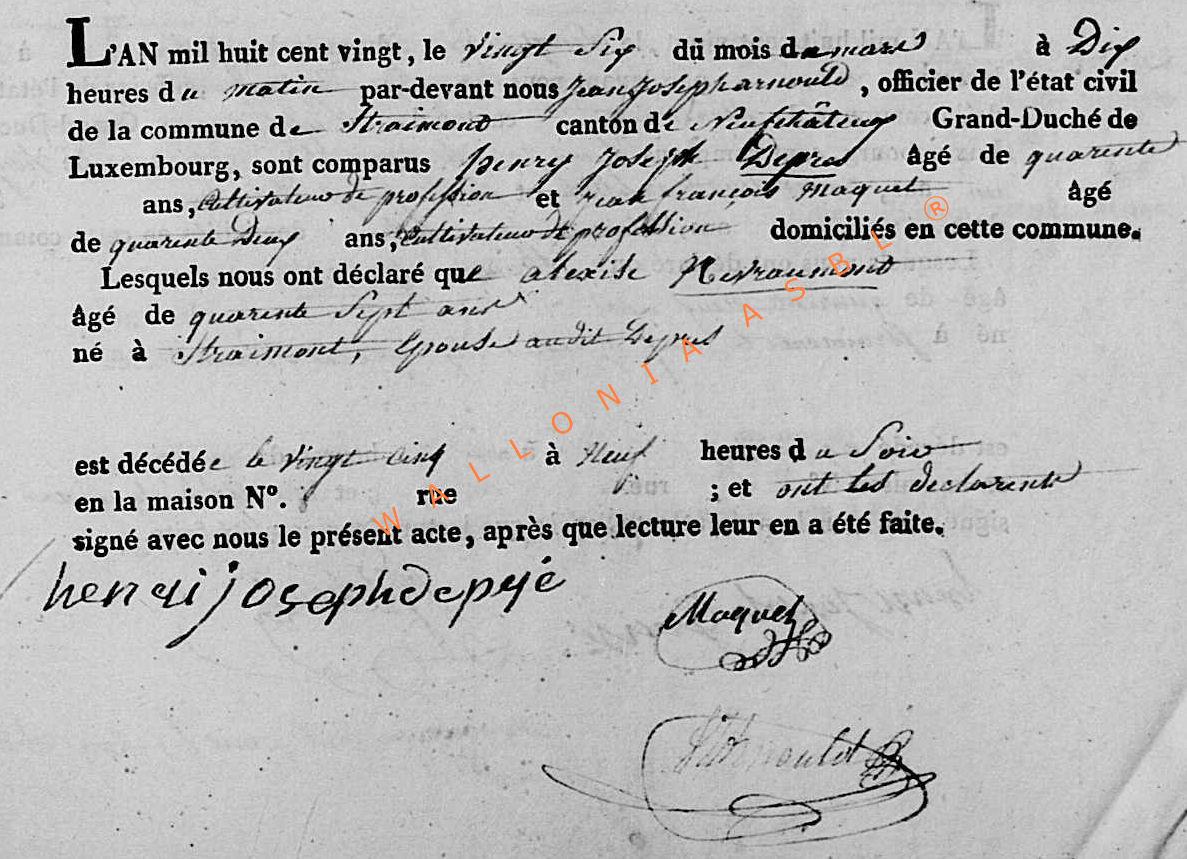 L'AN mil huit cent vingt, le vingt Six du mois de mars à Dix
heures du matin par-devant nous jean joseph arnould, officier de l'état civil
de la commune de Straimont canton de Neufchâteau Grand-Duché de
Luxembourg, sont comparus henry joseph Depres âgé de quarente
ans, cultivateur de profession et jean françois maquet âgé
de quarente Deux ans, cultivateur de profession domiciliés en cette commune.
Lesquels nous ont déclaré que alexise Hevraumont
âgé de quarente Sept ans
né à Straimont, Epouse audit Depres
est décédée le vingt cinq à Neuf heures du Soir
en la maison N°. rue ; et ont les declarents
signé avec nous le présent acte, après que lecture leur en a été faite.
henri joseph depré
Maquet
Arnould
WALLONIA ASBL ®